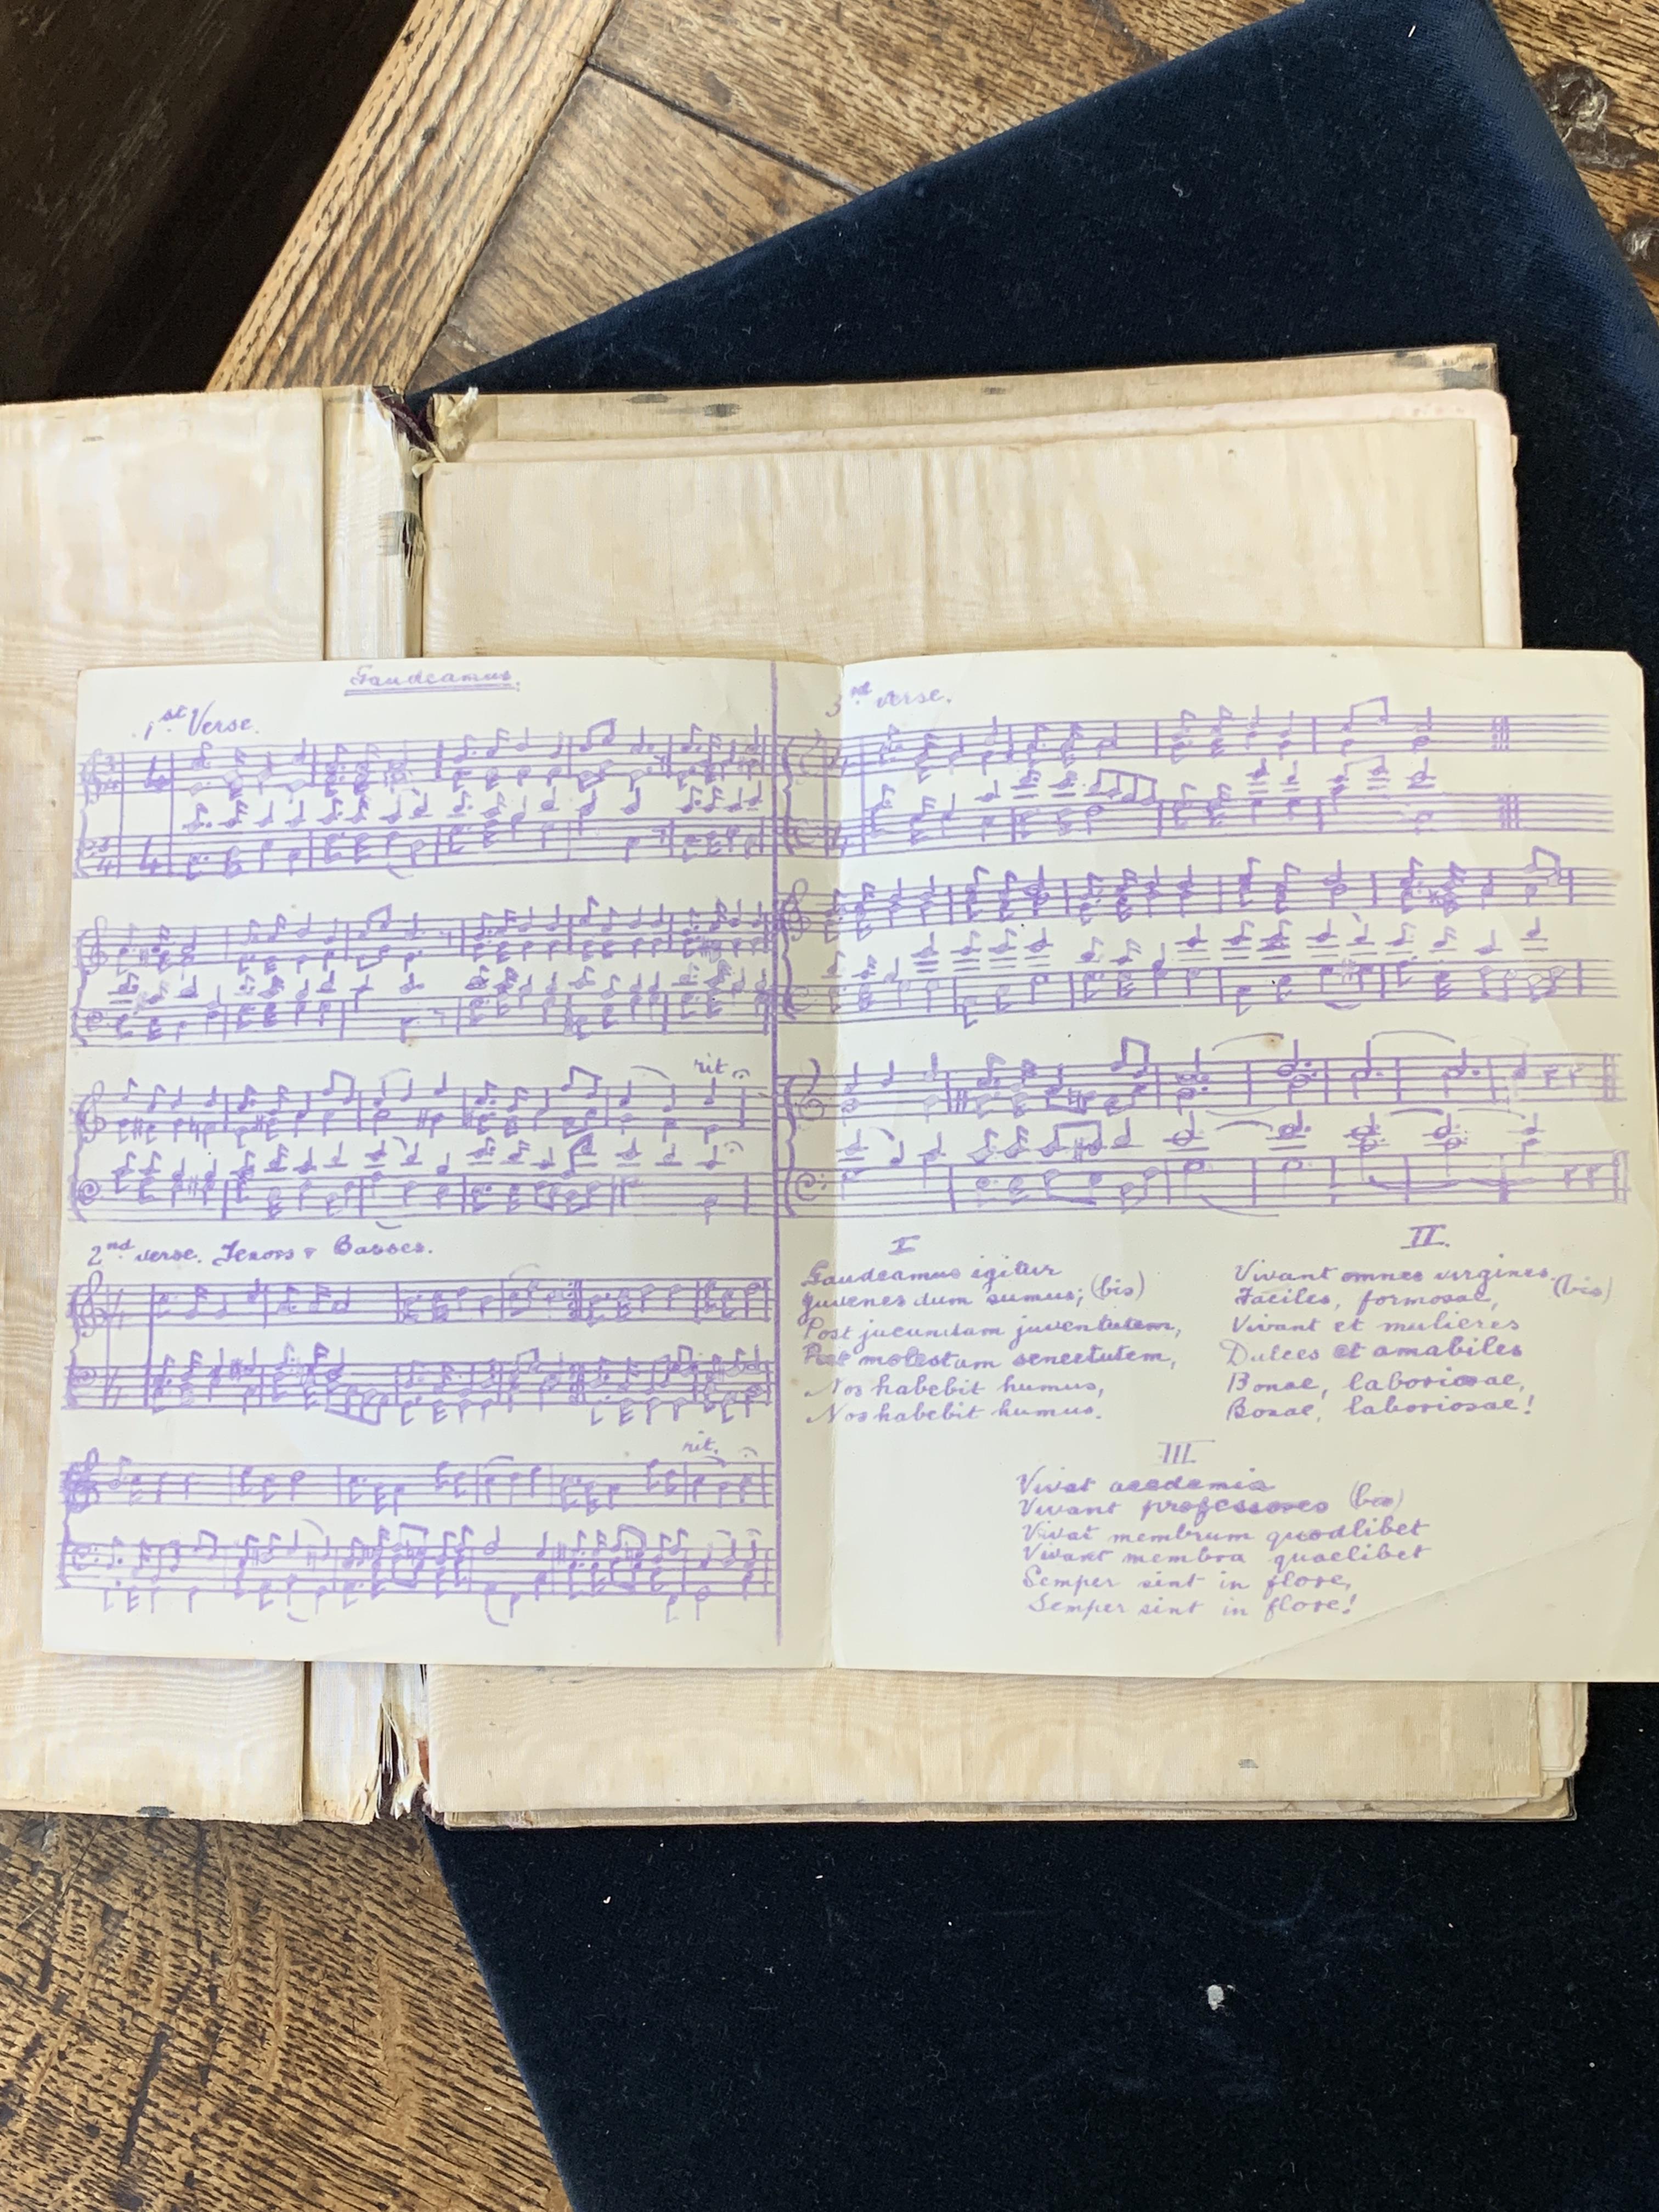 Gaudeamus.
1st Verse.
rit
2nd verse. Tenors & Basses.
rit.
3rd verse.
I
Gaudeamus igitur
Juvenes dum sumus; (bis)
Post jucundam juventutem,
Post molestam senectutem,
Nos habebit humus,
Nos habebit humus.
II.
Vivant omnes virgines,
Faciles, formosae, (bis)
Vivant et mulieres
Dulces et amabiles
Bonae, laboriosae,
Bonae, laboriosae!
III
Vivat academia
Vivant professores (bis)
Vivat membrum quodlibet
Vivant membra quaelibet
Semper sint in flore,
Semper sint in flore!